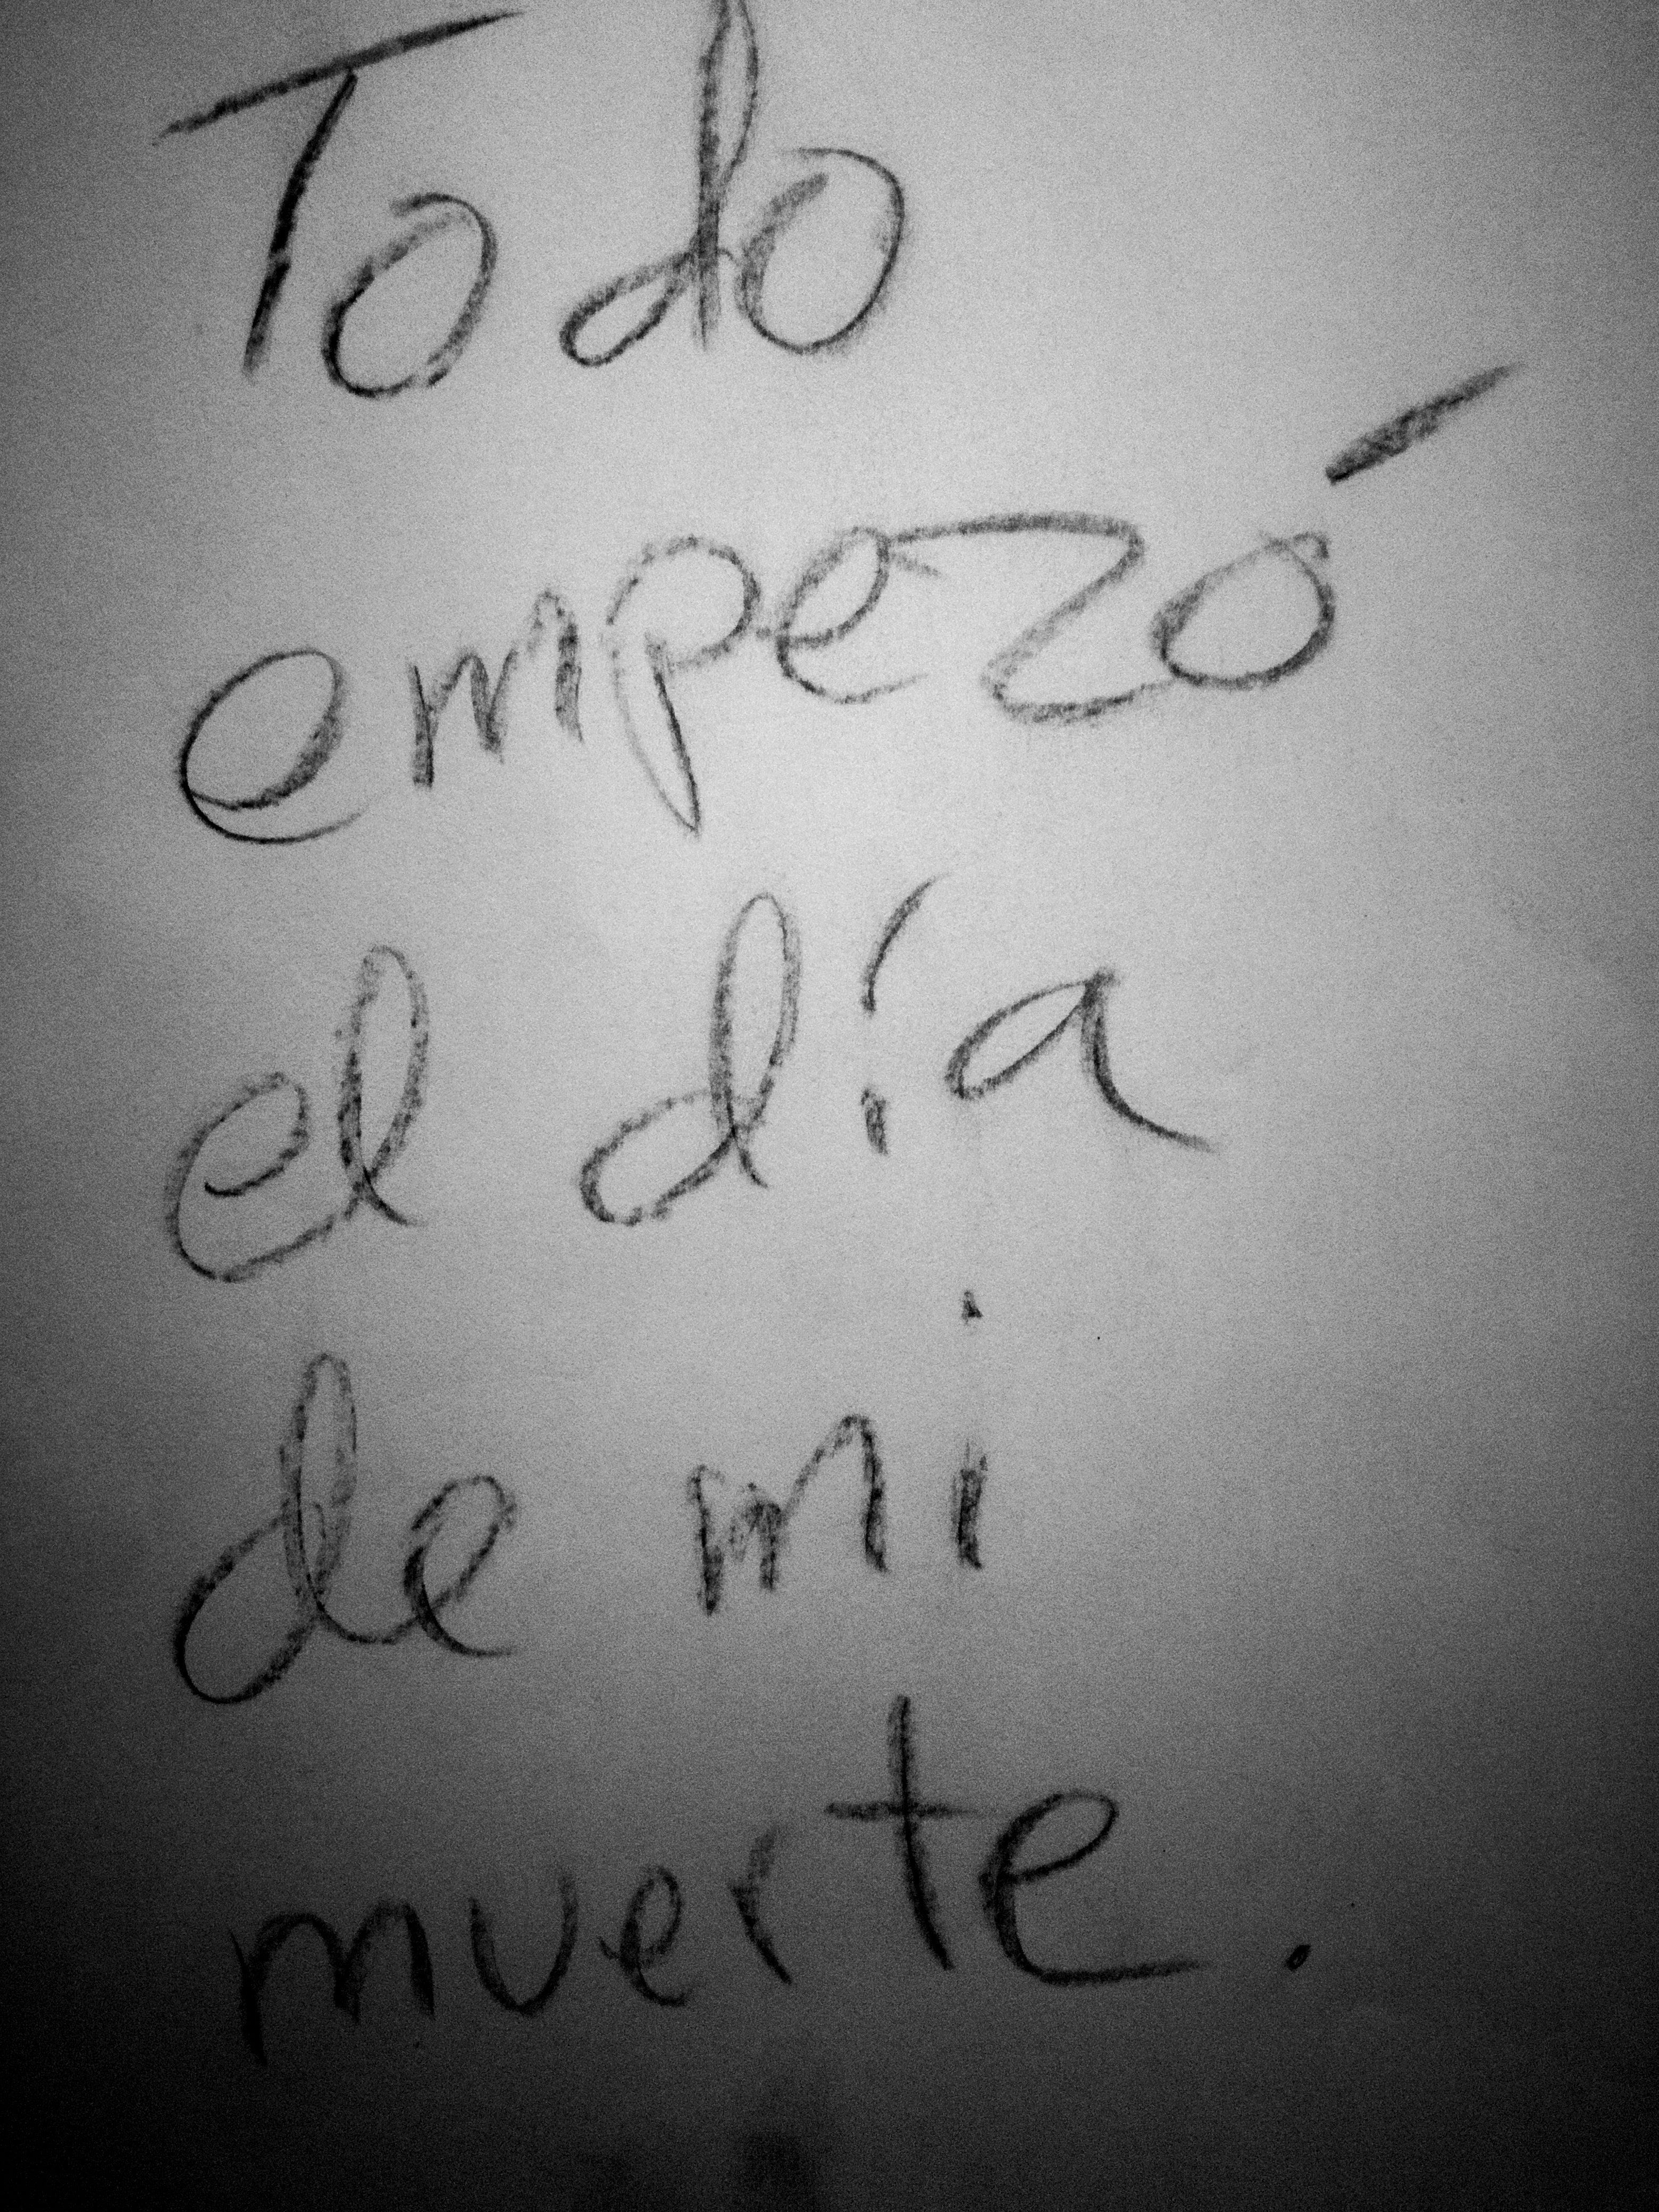 Todo
empezó
el día
de mi
muerte.